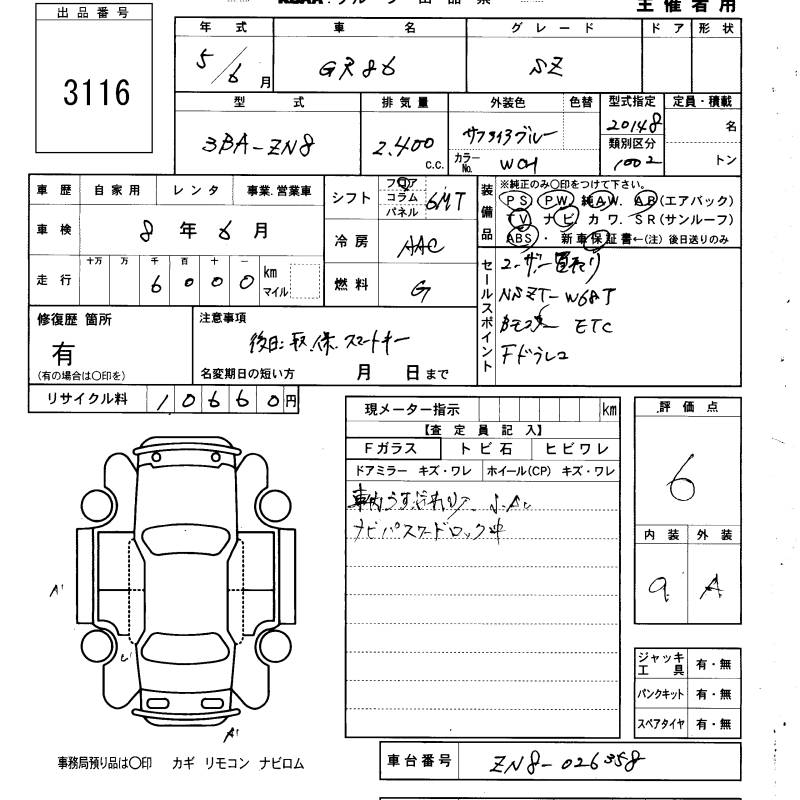 主催者用
出品番号
3116
年式 車名 グレード ドア 形状
5/6月 GR86 SZ
型式 排気量 外装色 色替 型式指定 定員・積載
3BA-ZN8 2.400 c.c. サファイアブルー 20148 名
カラーNo. W04 類別区分 1002 トン
車歴 自家用 レンタ 事業.営業車
車検 8年6月
走行 十万 万 千 百 十 一
6000 km マイル
シフト フロア コラム パネル 6MT
冷房 AAC
燃料 G
装備品
※純正のみ〇印をつけて下さい。
PS PW 純AW. AB(エアバック)
TV ナビ カワ. SR(サンルーフ)
ABS・新車保証書←(注)後日送りのみ
セールスポイント
ユーザー買取り
NSZT-W68T
Bモニター ETC
Fドラレコ
修復歴 箇所
有
(有の場合は〇印を)
注意事項
後日:取.保.スマートキー
名変期日の短い方 月 日まで
リサイクル料 10660円
現メーター指示 km
【査定員記入】
Fガラス トビ石 ヒビワレ
ドアミラー キズ・ワレ ホイール(CP) キズ・ワレ
車内うす汚れ
ナビパスワードロック中
評価点
6
内装 外装
9 A
A'
A'
ジャッキ工具 有・無
パンクキット 有・無
スペアタイヤ 有・無
事務局預り品は〇印 カギ リモコン ナビロム
車台番号 ZN8-026358